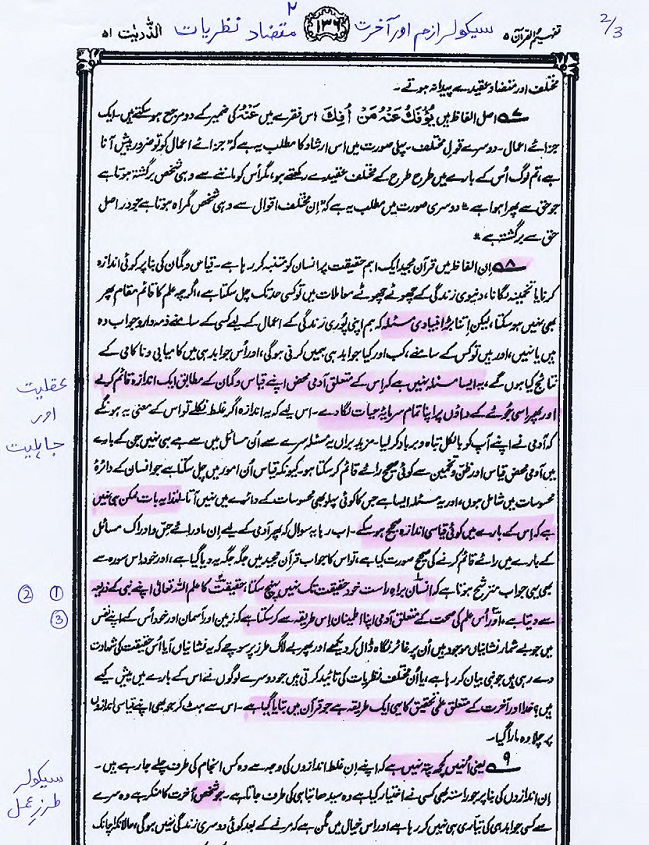 2/3
۲
تفہیم القرآن ۵ سیکولر ازم اور آخرت ۱۳۶ متضاد نظریات الذّٰریٰت ۵۱
مختلف اور متضاد عقیدے پیدا نہ ہوتے۔
۷ اصل الفاظ ہیں یُؤْفَكُ عَنْهُ مَنْ اُفِكَ اس فقرے میں عَنْهُ کی ضمیر کے دو مرجع ہو سکتے ہیں۔ ایک
جزائے اعمال۔ دوسرے قولِ مختلف۔ پہلی صورت میں اس ارشاد کا مطلب یہ ہے کہ "جزائے اعمال کو تو ضرور پیش آنا
ہے، تم لوگ اُس کے بارے میں طرح طرح کے مختلف عقیدے رکھتے ہو، مگر اُس کو ماننے سے وہی شخص برگشتہ ہوتا ہے
جو حق سے پھرا ہوا ہے"۔ دوسری صورت میں مطلب یہ ہے کہ "اِن مختلف اقوال سے وہی شخص گمراہ ہوتا ہے جو دراصل
حق سے برگشتہ ہے"۔
۸ اِن الفاظ میں قرآن مجید ایک اہم حقیقت پر انسان کو متنبہ کر رہا ہے۔ قیاس و گمان کی بنا پر کوئی اندازہ
کرنا یا تخمینہ لگانا، دنیوی زندگی کے چھوٹے چھوٹے معاملات میں تو کسی حد تک چل سکتا ہے، اگرچہ علم کا قائم مقام پھر
بھی نہیں ہو سکتا، لیکن اتنا بڑا بنیادی مسئلہ کہ ہم اپنی پُوری زندگی کے اعمال کے لیے کسی کے سامنے ذمہ دار و جواب دہ
ہیں یا نہیں، اور ہیں تو کس کے سامنے، کب اور کیا جوابدہی ہمیں کرنی ہوگی، اور اُس جوابدہی میں کامیابی و ناکامی کے
نتائج کیا ہوں گے، یہ ایسا مسئلہ نہیں ہے کہ اِس کے متعلق آدمی محض اپنے قیاس و گمان کے مطابق ایک اندازہ قائم کر لے
اور پھر اسی جُوئے کے داؤں پر اپنا تمام سرمایۂ حیات لگا دے۔ اس لیے کہ یہ اندازہ اگر غلط نکلے تو اس کے معنی یہ ہونگے
کہ آدمی نے اپنے آپ کو بالکل تباہ و برباد کر لیا۔ مزید براں یہ مسئلہ سرے سے اُن مسائل میں سے ہے ہی نہیں جن کے بارے
میں آدمی محض قیاس اور ظن و تخمین سے کوئی صحیح رائے قائم کر سکتا ہو۔ کیونکہ قیاس اُن امور میں چل سکتا ہے جو انسان کے دائرۂ
محسوسات میں شامل ہوں، اور یہ مسئلہ ایسا ہے جس کا کوئی پہلو بھی محسوسات کے دائرے میں نہیں آتا۔ لہٰذا یہ بات ممکن ہی نہیں
ہے کہ اِس کے بارے میں کوئی قیاسی اندازہ صحیح ہو سکے۔ اب رہا یہ سوال کہ پھر آدمی کے لیے اِن ماورائے حِس و ادراک مسائل
کے بارے میں رائے قائم کرنے کی صحیح صورت کیا ہے، تو اس کا جواب قرآن مجید میں جگہ جگہ یہ دیا گیا ہے، اور خود اِس سورہ سے
بھی یہی جواب مترشح ہوتا ہے کہ انسان براہِ راست خود حقیقت تک نہیں پہنچ سکتا، حقیقت کا علم اللہ تعالیٰ اپنے نبی کے ذریعہ
سے دیتا ہے، اور اُس علم کی صحت کے متعلق آدمی اپنا اطمینان اِس طریقہ سے کر سکتا ہے کہ زمین اور آسمان اور خود اُس کے اپنے نفس
میں جو بے شمار نشانیاں موجود ہیں اُن پر غائر نگاہ ڈال کر دیکھے اور پھر بے لاگ طرز پر سوچے کہ یہ نشانیاں آیا اُس حقیقت کی شہادت
دے رہی ہیں جو نبی بیان کر رہا ہے، یا اُن مختلف نظریات کی تائید کرتی ہیں جو دوسرے لوگوں نے اس کے بارے میں پیش کیے
ہیں؟ خدا اور آخرت کے متعلق علمی تحقیق کا یہی ایک طریقہ ہے جو قرآن میں بتایا گیا ہے۔ اس سے ہٹ کر جو بھی اپنے قیاسی اندازوں
پر چلا وہ مارا گیا۔
۹ یعنی اُنہیں کچھ پتہ نہیں ہے کہ اپنے اِن غلط اندازوں کی وجہ سے وہ کس انجام کی طرف چلے جا رہے ہیں۔
اِن اندازوں کی بنا پر جو راستہ بھی کسی نے اختیار کیا ہے وہ سیدھا تباہی کی طرف جاتا ہے۔ جو شخص آخرت کا منکر ہے وہ سرے
سے کسی جوابدہی کی تیاری ہی نہیں کر رہا ہے اور اس خیال میں مگن ہے کہ مرنے کے بعد کوئی دوسری زندگی نہیں ہوگی، حالانکہ اچانک
عقلیت
اور
جاہلیت
① ②
③
سیکولر
طرزِ عمل